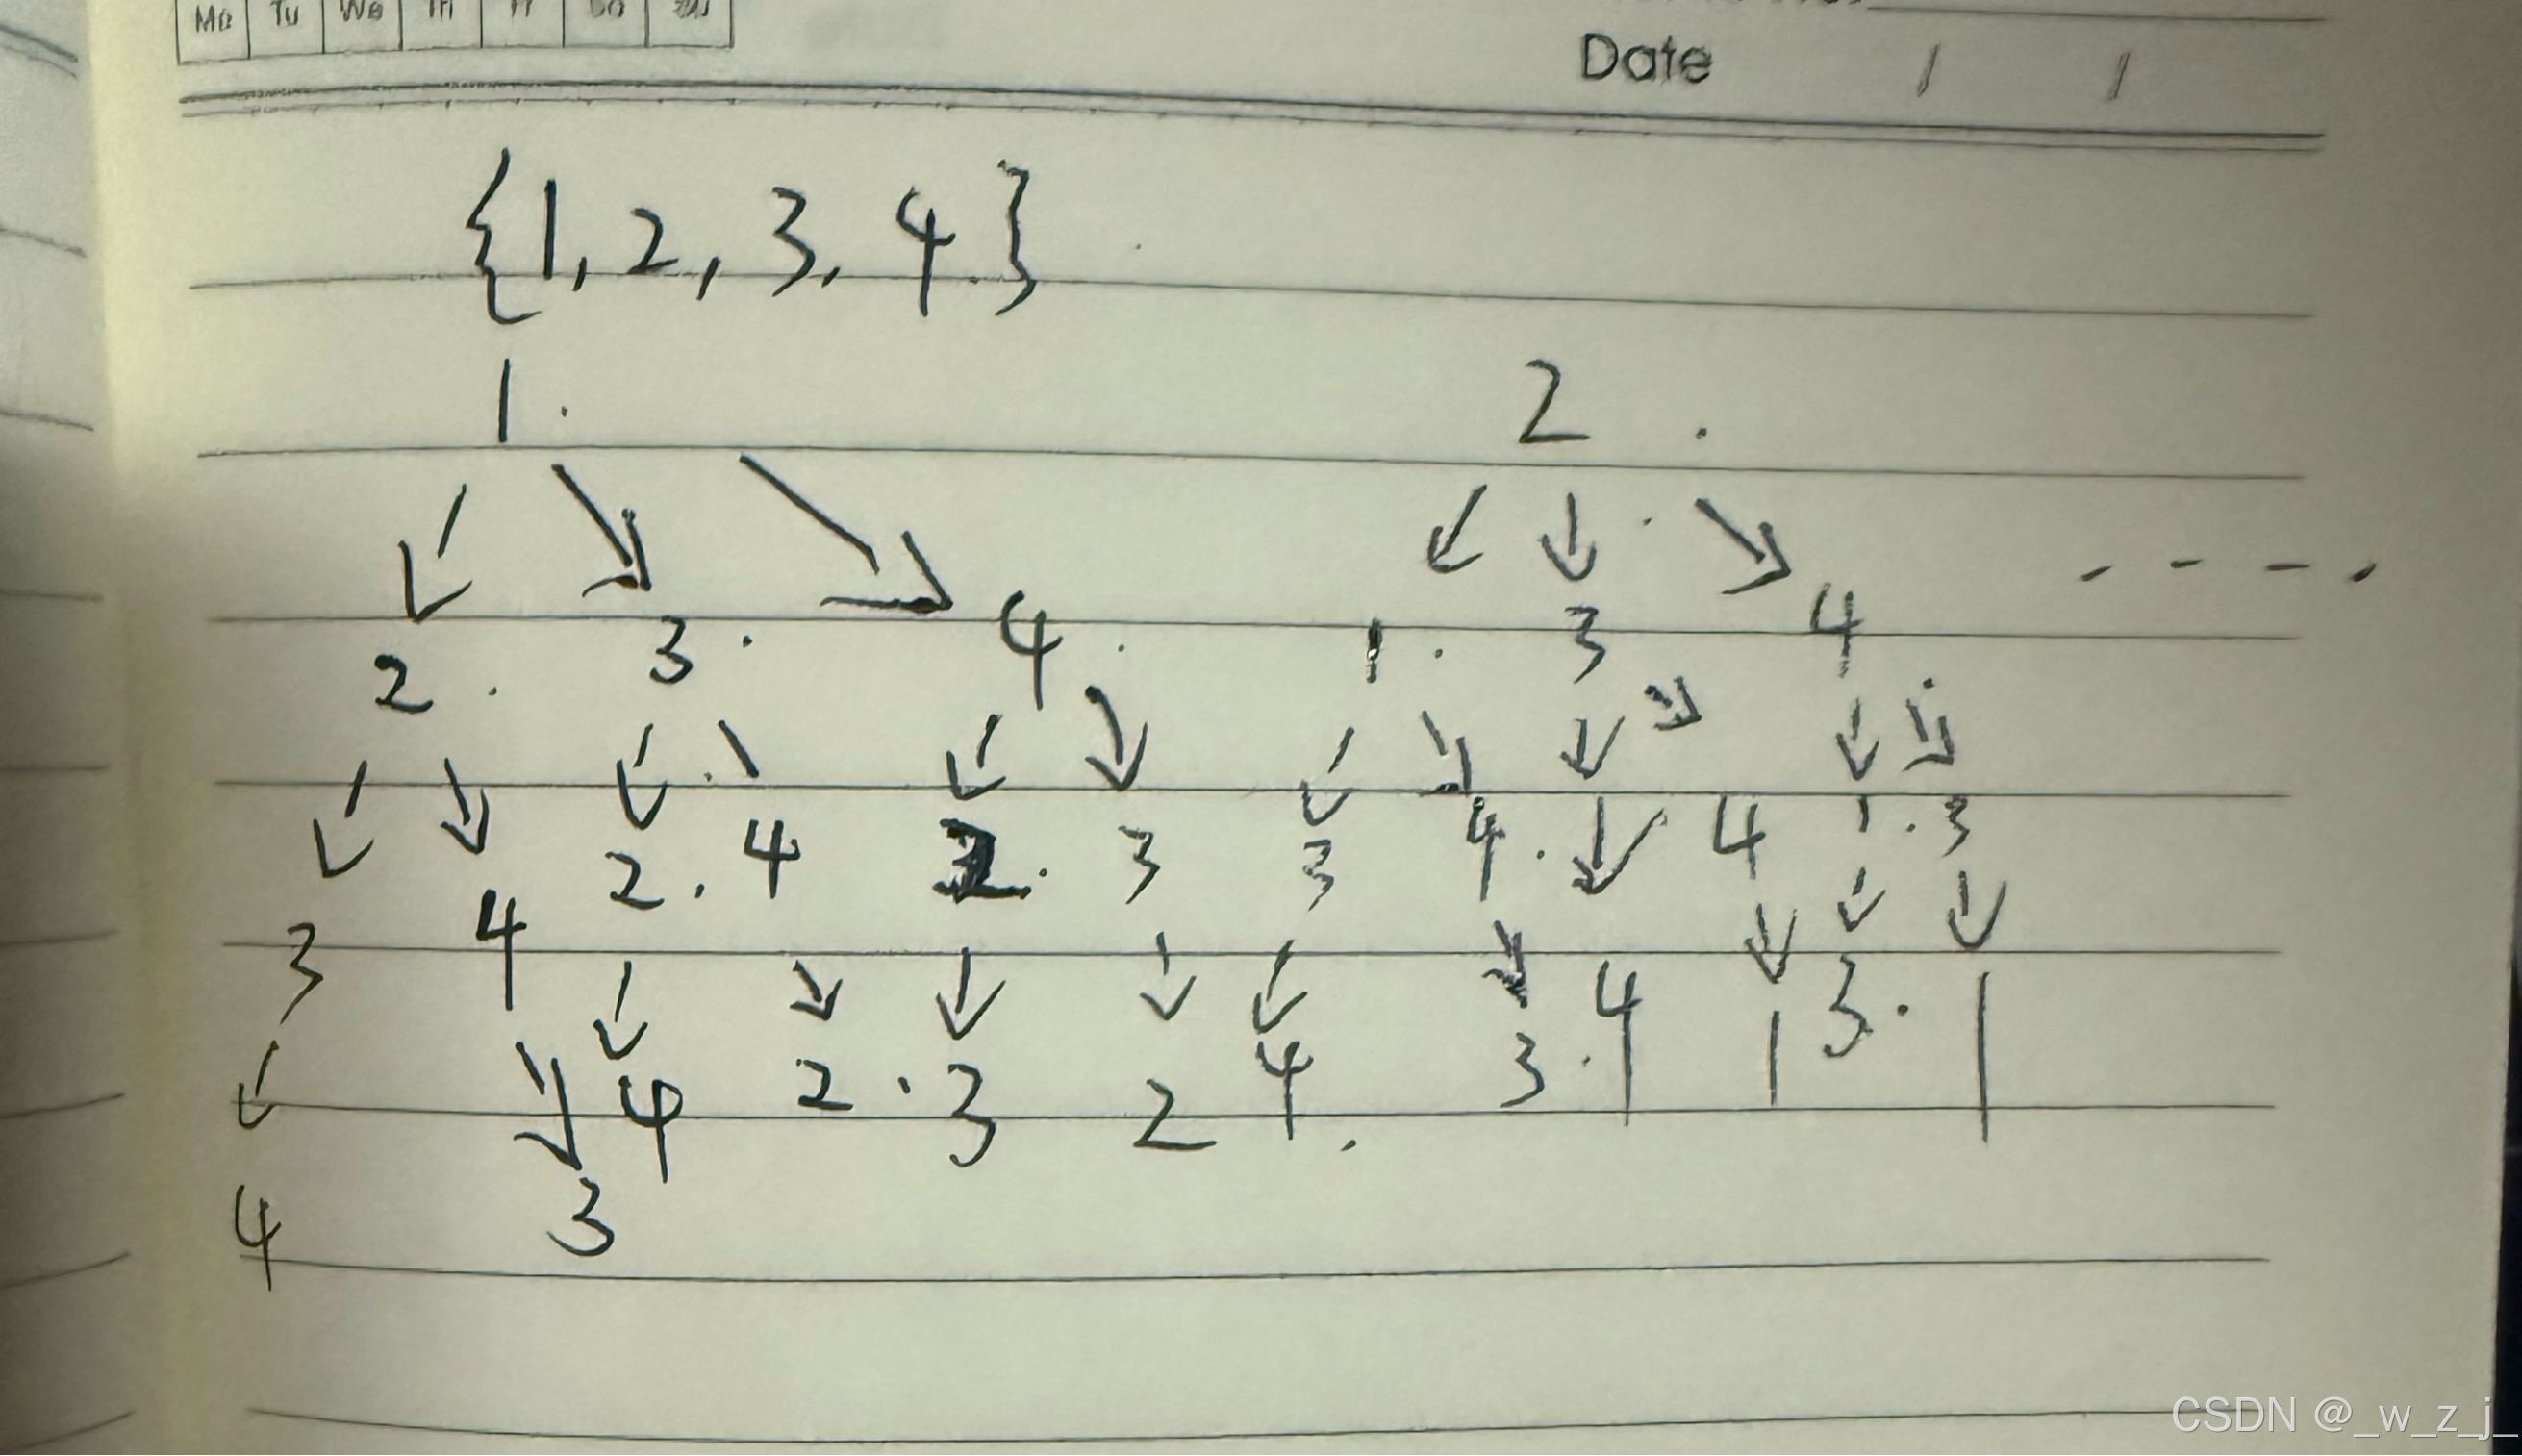 Mo Tu We Th Fr Sa Su
Date / /
{1, 2, 3, 4}
1. 2.
2. 3. 4. 1. 3 4
2. 4 2. 3 3 4. 4 1. 3
3 4
4 2. 3 2 4. 3. 4 1 3. 1
4 3
CSDN @_w_z_j_